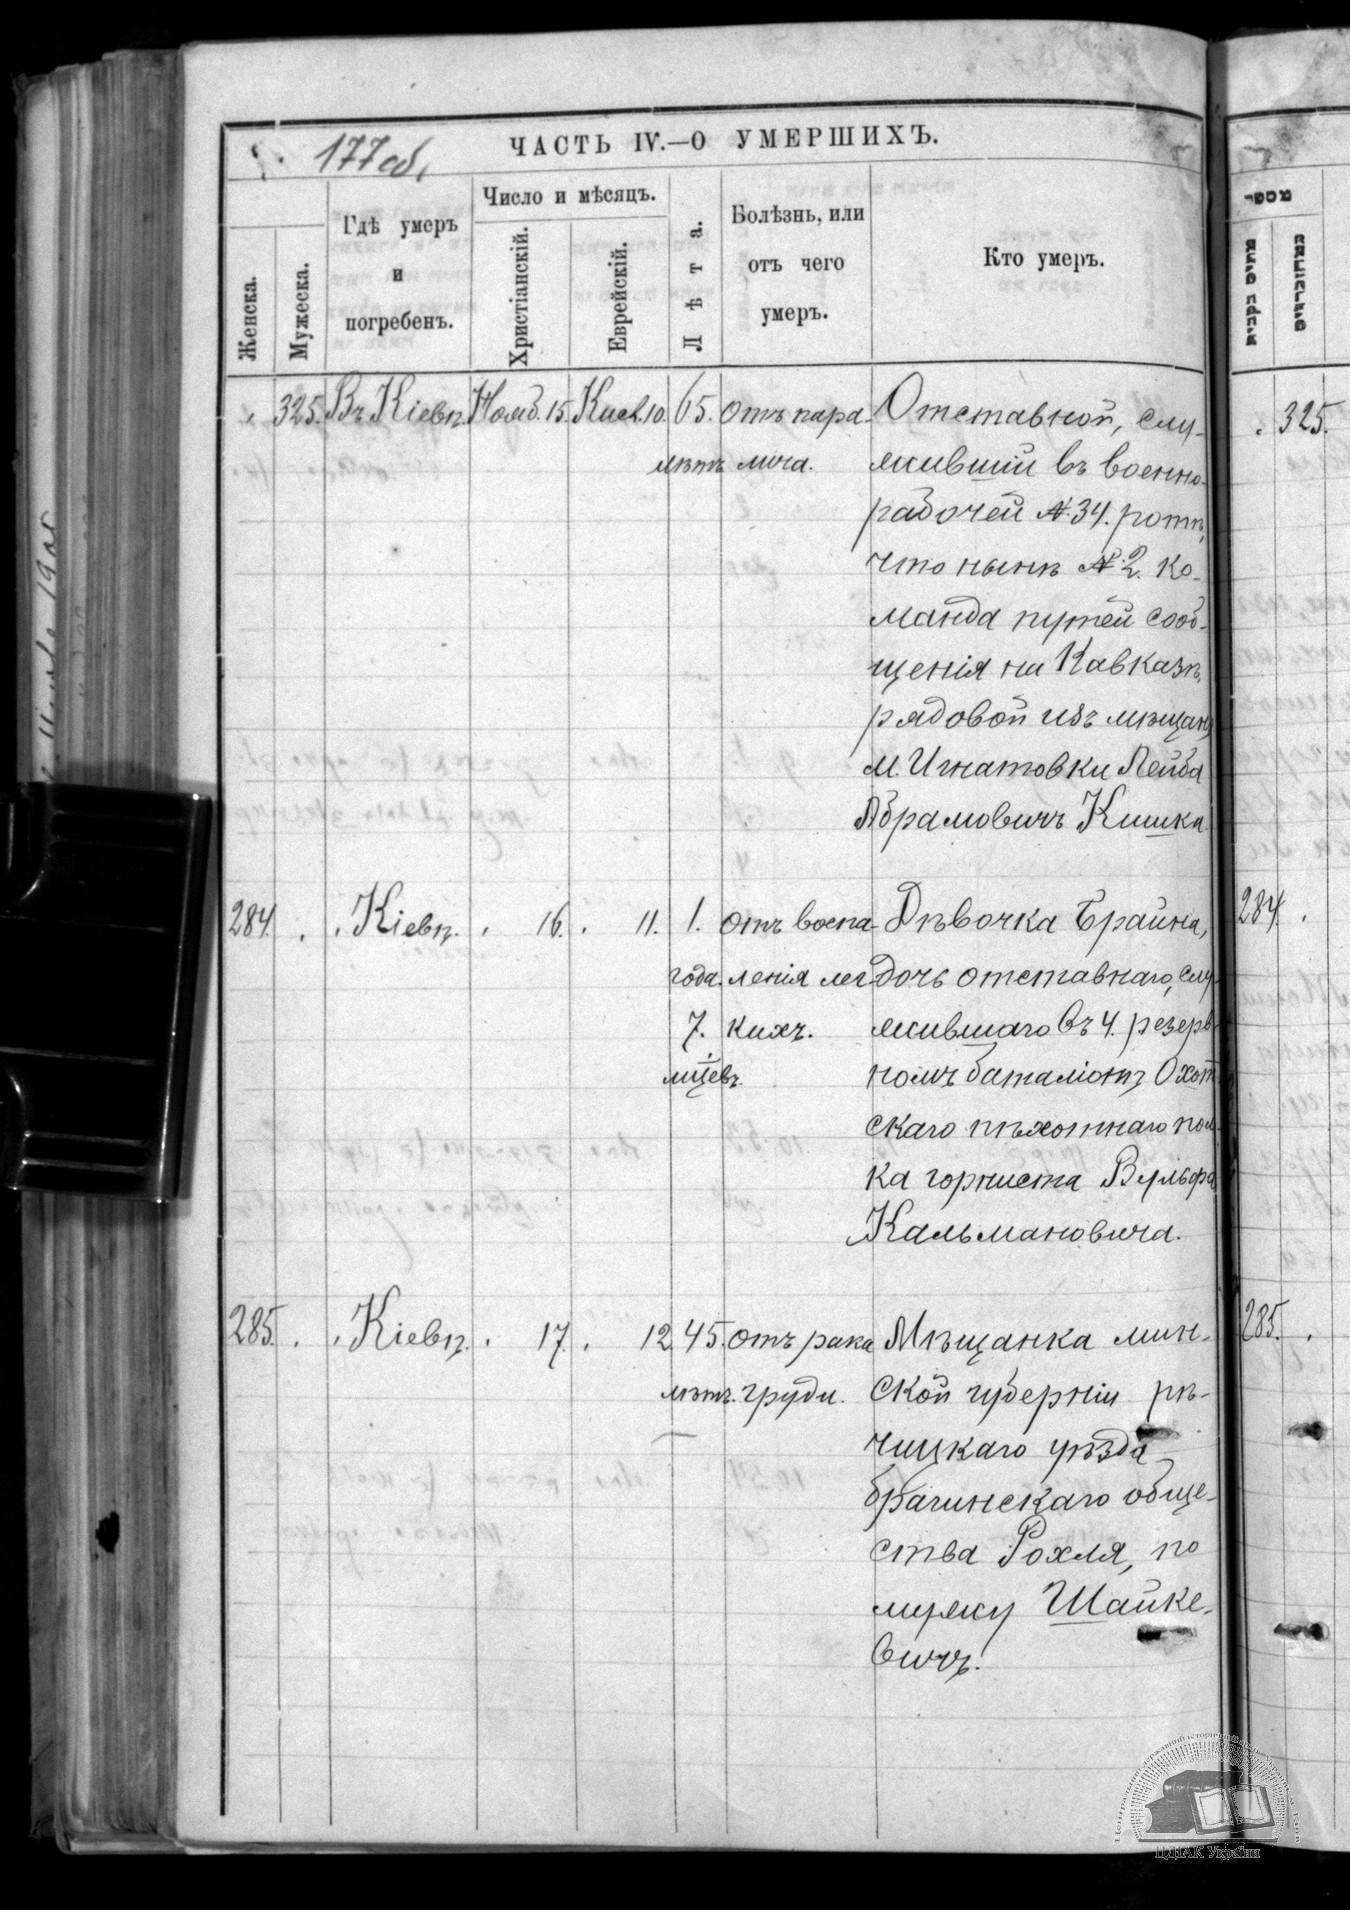 177 об.
ЧАСТЬ IV.—О УМЕРШИХЪ.
Женска.
Мужеска.
Гдѣ умеръ
и
погребенъ.
Число и мѣсяцъ.
Христіанскій.
Еврейскій.
Лѣта.
Болѣзнь, или
отъ чего
умеръ.
Кто умеръ.
325. Въ Кіевѣ. Нояб. 15. Кисл. 10. 65. отъ пара- Отставной, слу-
лѣтъ лича. жившій въ военно-
рабочей №34. ротѣ,
что нынѣ №2. ко-
манда путей сооб-
щенія на Кавказѣ,
рядовой изъ мѣщанъ
м. Игнатовки Лейба
Абрамовичъ Кишка.
284. Кіевѣ. 16. 11. 1. отъ воспа- Дѣвочка Брайна,
года. ленія лег- дочь отставнаго, слу-
7. кихъ. жившаго въ 4. резерв-
мцевъ. номъ баталіонѣ Охот-
скаго пѣхотнаго пол-
ка горниста Вульфа
Кальмановича.
285. Кіевѣ. 17. 12. 45. отъ рака Мѣщанка мин-
лѣтъ. груди. ской губерніи рѣ-
чицкаго уѣзда
брагинскаго обще-
ства Рохля, по
мужу Шайке-
вичъ.
325.
284.
285.
ЦДІАК України